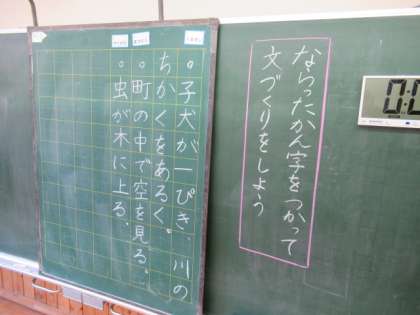 ならったかん字をつかって
文づくりをしよう
。子犬が一ぴき、川の
ちかくをあるく。
。町の中で空を見る。
。虫が木に上る。